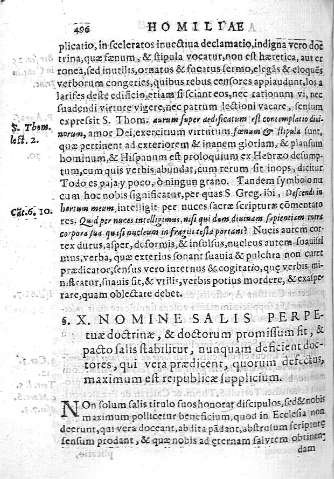 496 HOMILIAE
plicatio, in sceleratos inuectiua declamatio, indigna vero doc
trina, quæ fœnum, & stipula vocatur, non est hæretica, aut er
ronea, sed inutilis, ornatus & fucatus sermo, elegās & eloquēs
verborum congeries, quibus rebus censores applaudunt, los a
larifes deste edificio, etiam si sciant eos, nec rationum vi, nec
suadendi virtute vigere, nec patrum lectioni vacare, sensum
expressit S. Thom. aurum super ædificatum est contemplatio di
S. Thom.
lect. 2.
uinorum, amor Dei, exercitium virtutum fœnum & stipula sunt,
quæ pertinent ad exteriorem & inanem gloriam, & plausum
hominum, & Hispanum est proloquium ex Hebræo desump-
tum, cum quis verbis abundat, cum rerum sit inops, dicitur
Todo es paja y poco, ò ningun grano. Tandem symbolo nu
cum hoc nobis significatur, per quas S. Greg. ibi, Descendi in
Cāt. 6, 10.
hortum meum, intelligit per nuces sacræ scripturæ cōmentato
res. Quid per nuces intelligimus, nisi qui dum diuinam sapientiam intra
corpora sua quasi nucleum in fragili testa portant? Nucis autem cor-
tex durus, asper, deformis, & insulsus, nucleus autem suauissi
mus, verba, quæ exterius sonant suauia & pulchra non curet
prædicator, sensus vero internus & cogitatio, quæ verbis mi-
nistratur, suauis sit, & vtilis, verbis potius mordere, & exaspe
rare, quam oblectare debet.
§. X. NOMINE SALIS PERPE-
tuæ doctrinæ, & doctorum promissum sit, &
pacto salis stabilitur, nunquam deficient doc-
tores, qui vera prædicent, quorum defectus,
maximum est reipublicæ supplicium.
NOn solum salis titulo suos honorat discipulos, sed & nobis
maximum pollicetur beneficium, quod in Ecclesia non
deerunt, qui vera doceant, abdita pādant, abstrusum scripturę
sensum prodant, & quæ nobis ad eternam salutem obtinen
dam